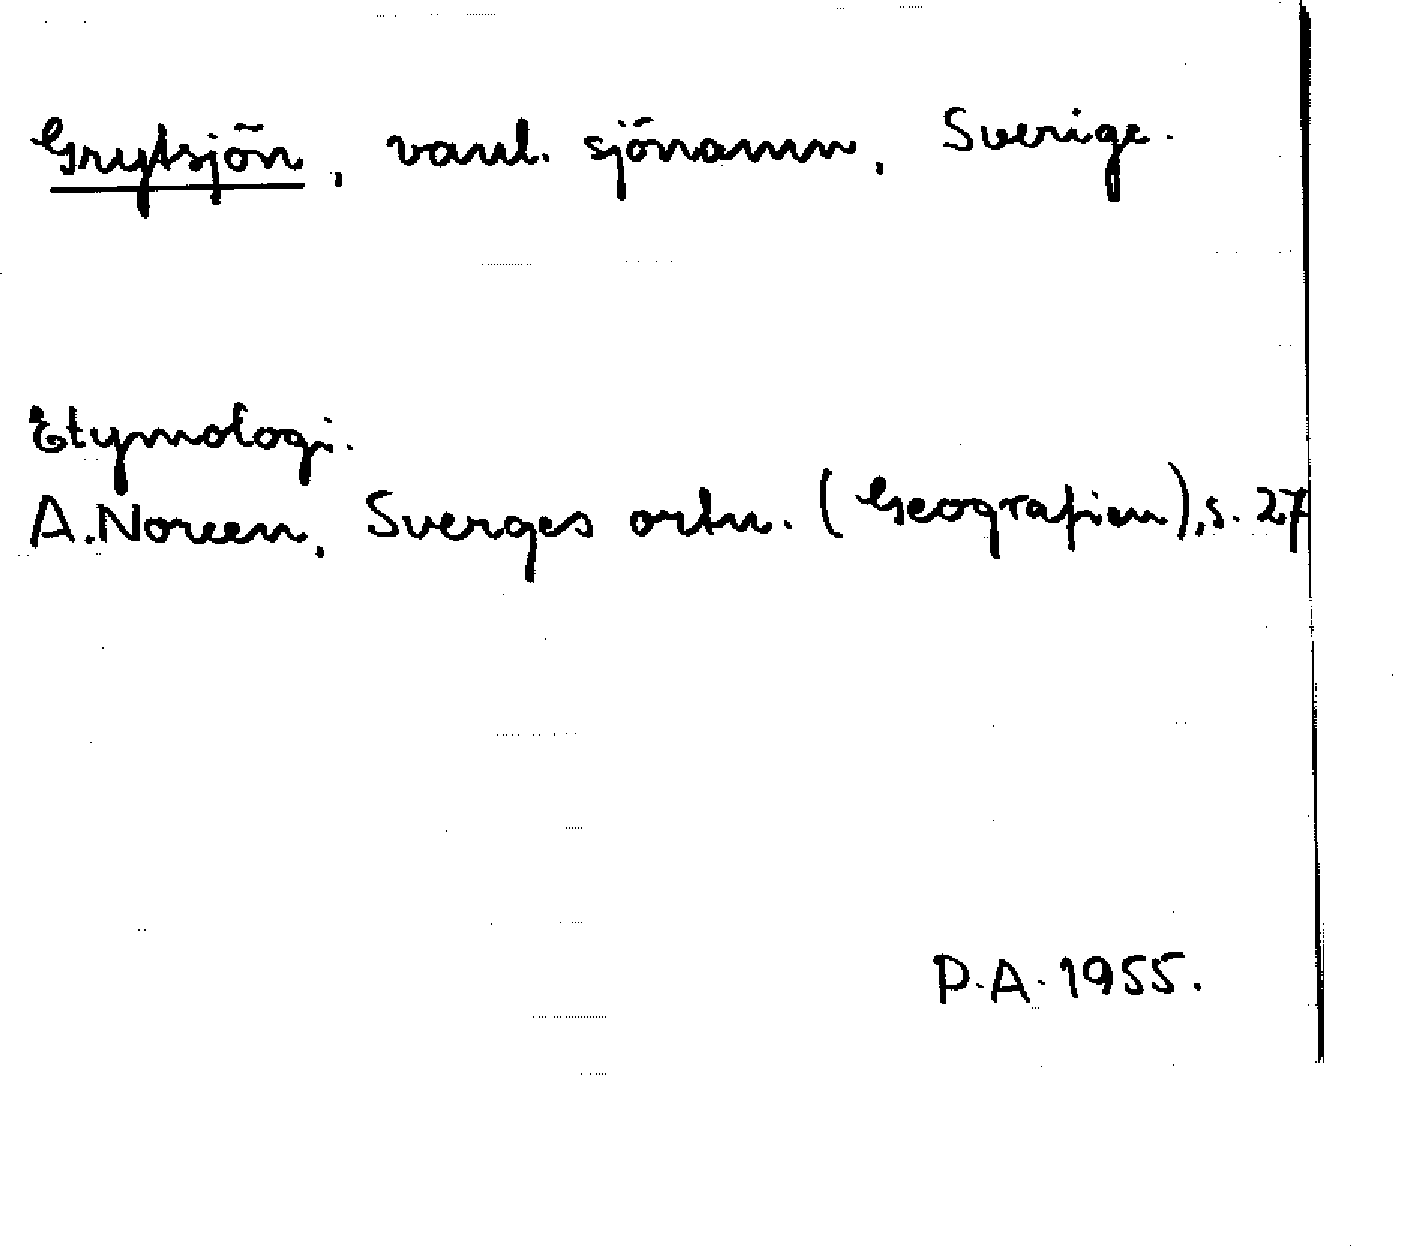 Grytsjön, vanl. sjönamn, Sverige.
Etymologi.
A. Noreen, Sverges ortn. (Geografien), s. 27
P.A. 1955.